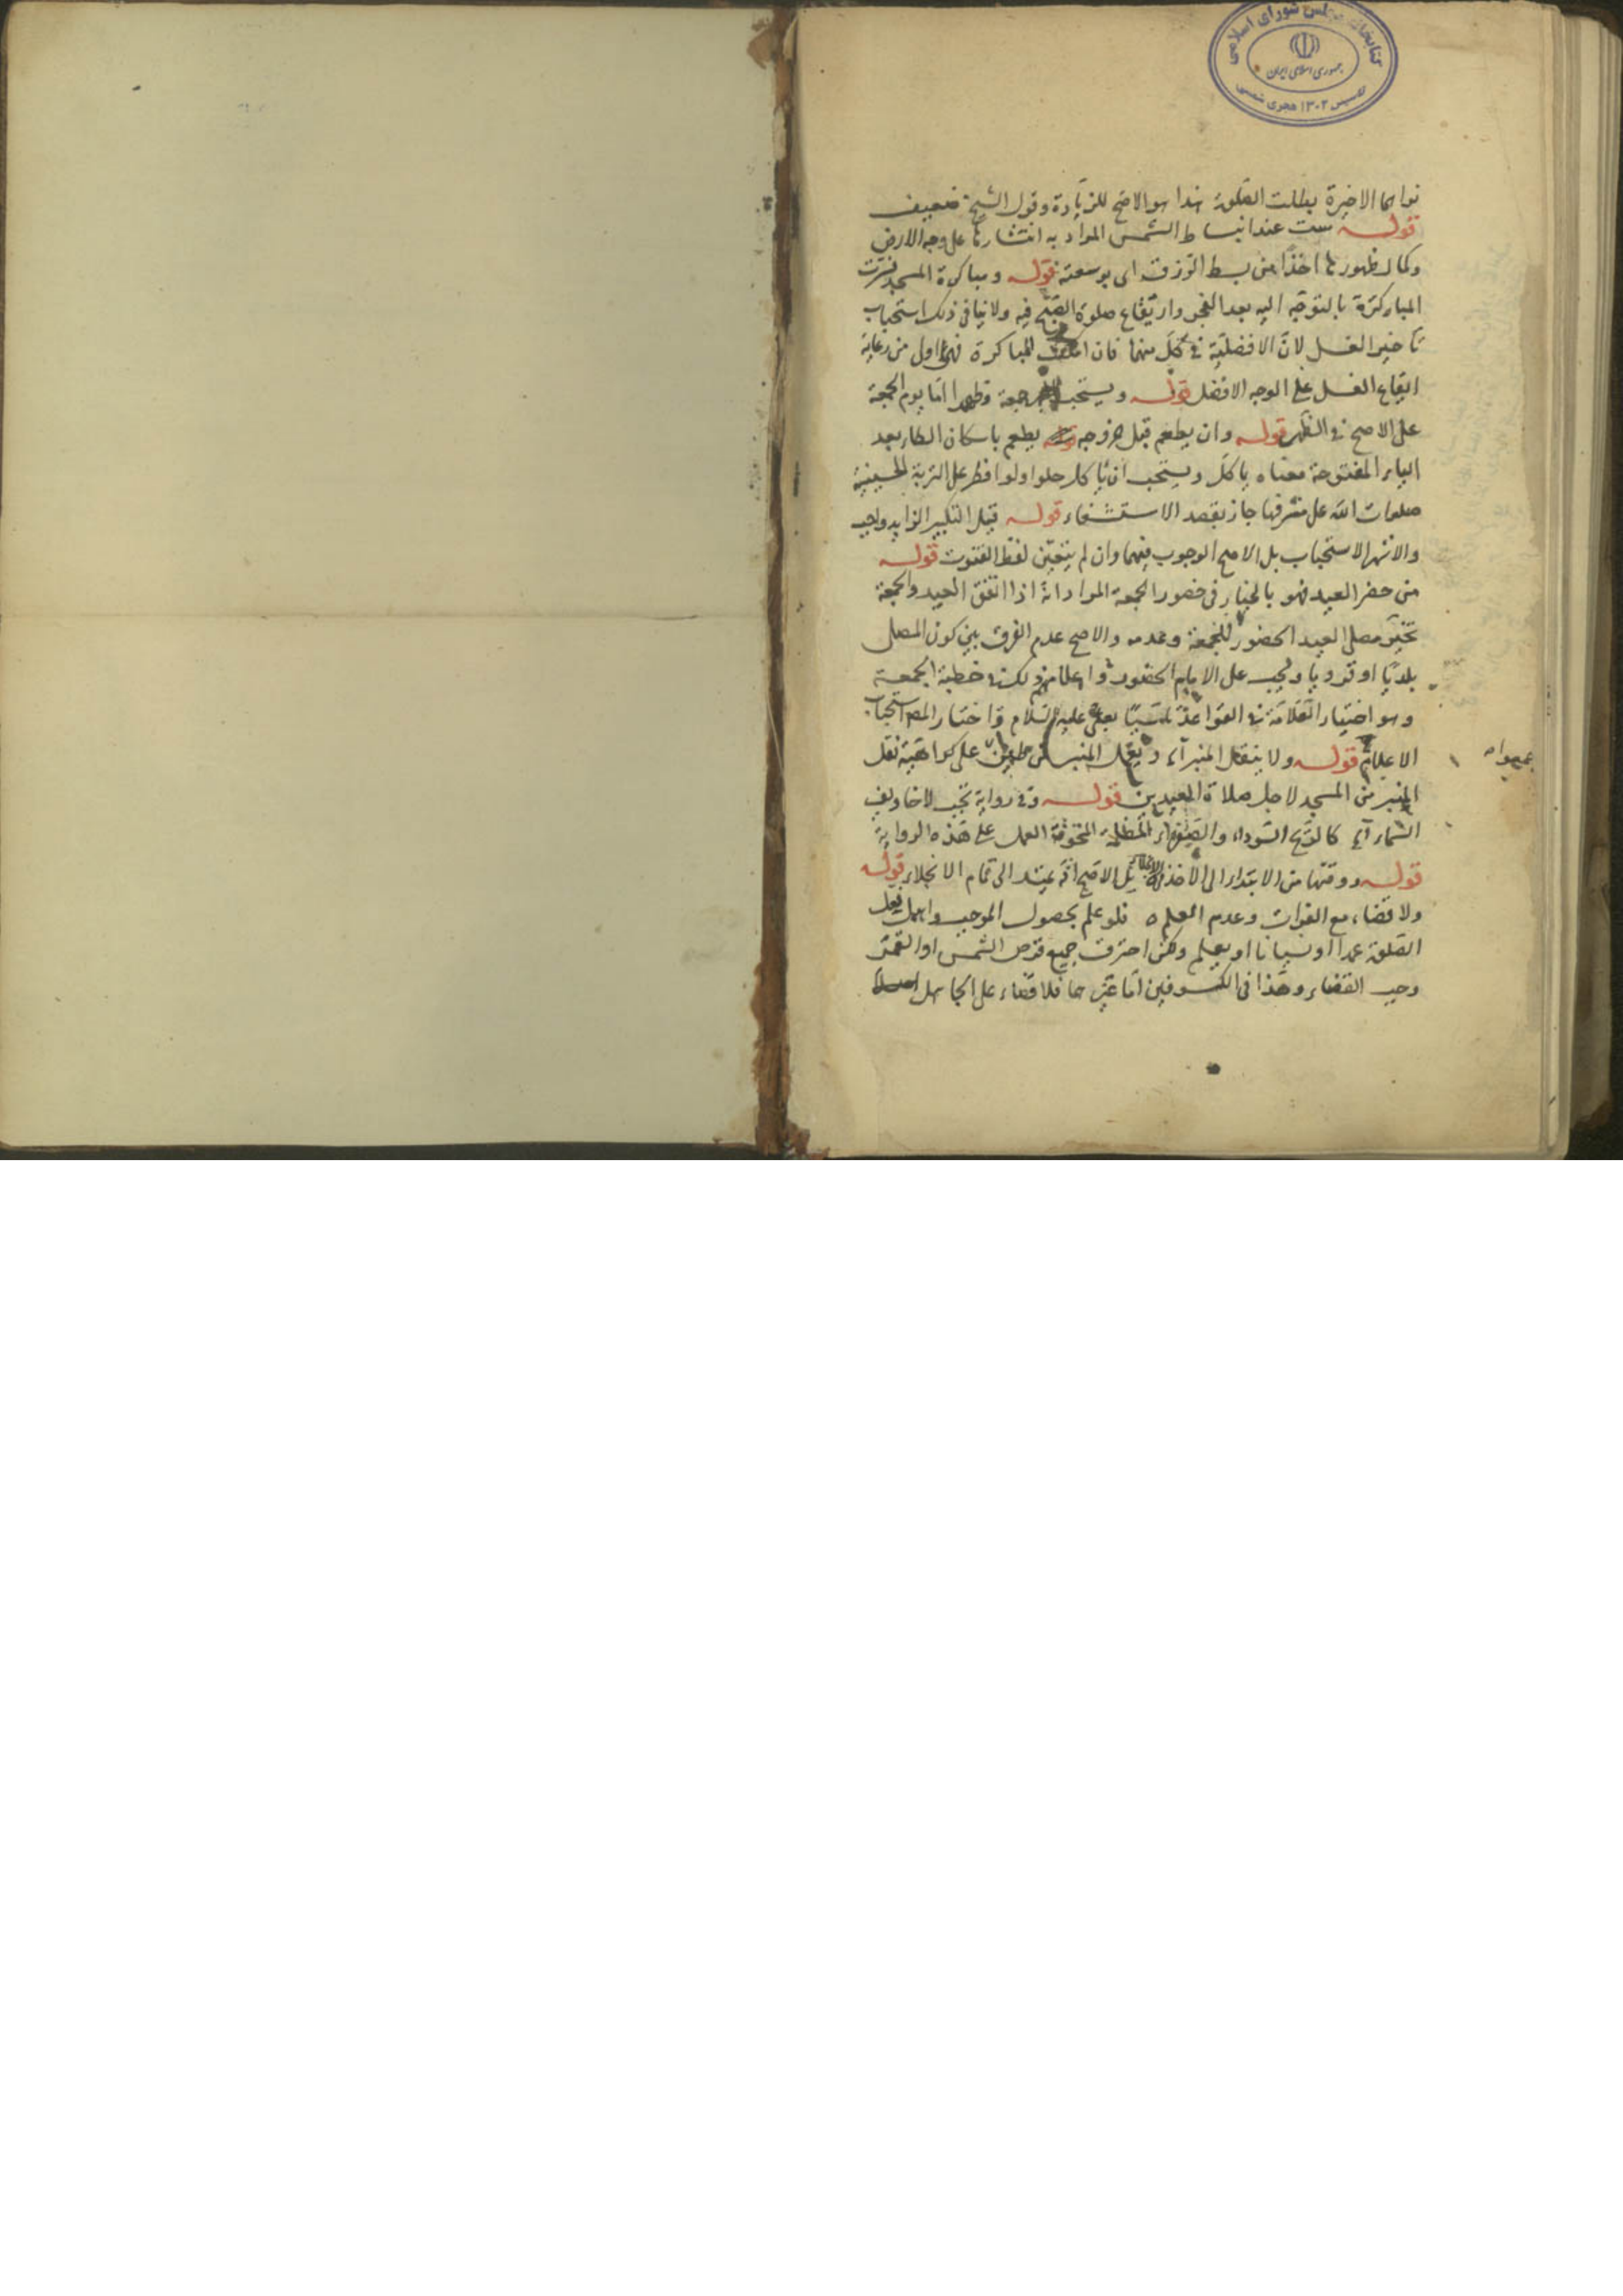 كتابخانه مجلس شورای اسلامی
جمهوری اسلامی ایران
تاسیس ۱۳۰۲ هجری شمسی
نواهما الاخيرة بطلت الصلوة هذا هو الاصح للزيادة وقول الشيخ ضعيف
قوله ست عند انبساط الشمس المراد به انتشارها على وجه الارض
وكمال ظهورها اخذا من بسط الرزق اى توسعته قوله ومباكرة المسجد فسرت
المباكرة بالتوجه اليه بعد الفجر وايقاع صلوة الصبح فيه ولا ينافى ذلك استحباب
تاخير الغسل لان الافضلية فى كل منهما فان المباكرة فهى اولى من رعاية
ايقاع الغسل على الوجه الافضل قوله ويستحب جمعة وظهرا اما يوم الجمعة
على الاصح فى الظهر قوله وان يطعم قبل خروجه يطعم باسكان الطاء بعد
الياء المفتوحة معناه ياكل ويستحب ان ياكل حلوا ولو افطر على التربة الحسينية
صلوات الله على مشرفها جاز بقصد الاستشفاء قوله قيل التكبير الزايد واجب
والاشهر الاستحباب بل الاصح الوجوب فيهما وان لم يتعين لفظ القنوت قوله
من حضر العيد فهو بالخيار فى حضور الجمعة المراد انه اذا اتفق العيد والجمعة
تخير مصلى العيد الحضور للجمعة وعدمه والاصح عدم الفرق بين كون المصلى
بلديا او قرويا ويجب على الامام الحضور و اعلامهم ذلك فى خطبة الجمعة
وهو اختيار العلامة فى القواعد تاسيا بعلى عليه السلام واختار المص استحباب
الاعلام قوله ولا ينقل المنبر آه ويعمل المنبر من طين على كراهية نقل
المنبر من المسجد لاجل صلاة العيدين قوله وفى رواية تجب لاخاويف
السماء آه كالريح السوداء والصفراء المظلمة المخوفة العمل على هذه الرواية
قوله ووقتها من الابتداء الى الاخذ فى الانجلاء بل الاصح انه يمتد الى تمام الانجلاء قوله
ولا قضاء مع الفوات وعدم العلم ه فلو علم بحصول الموجب واهمل فعل
الصلوة عمدا او نسيانا او يعلم ولكن احترق جميع قرص الشمس او القمر
وجب القضاء وهذا فى الكسوفين اما غيرهما فلا قضاء على الجاهل اصلا